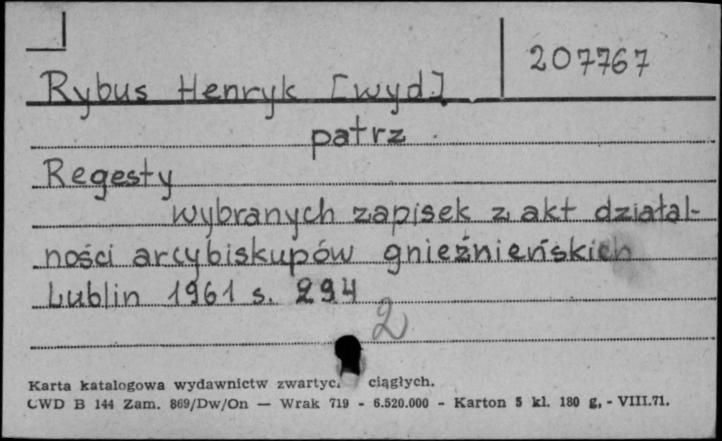 207767
Rybus Henryk [wyd.]
patrz
Regesty
wybranych zapisek z akt działal-
ności arcybiskupów gnieźnieńskich
Lublin 1961 s. 294
2
Karta katalogowa wydawnictw zwartyc. ciągłych.
CWD B 144 Zam. 869/Dw/On — Wrak 719 - 6.520.000 - Karton 5 kl. 180 g. - VIII.71.